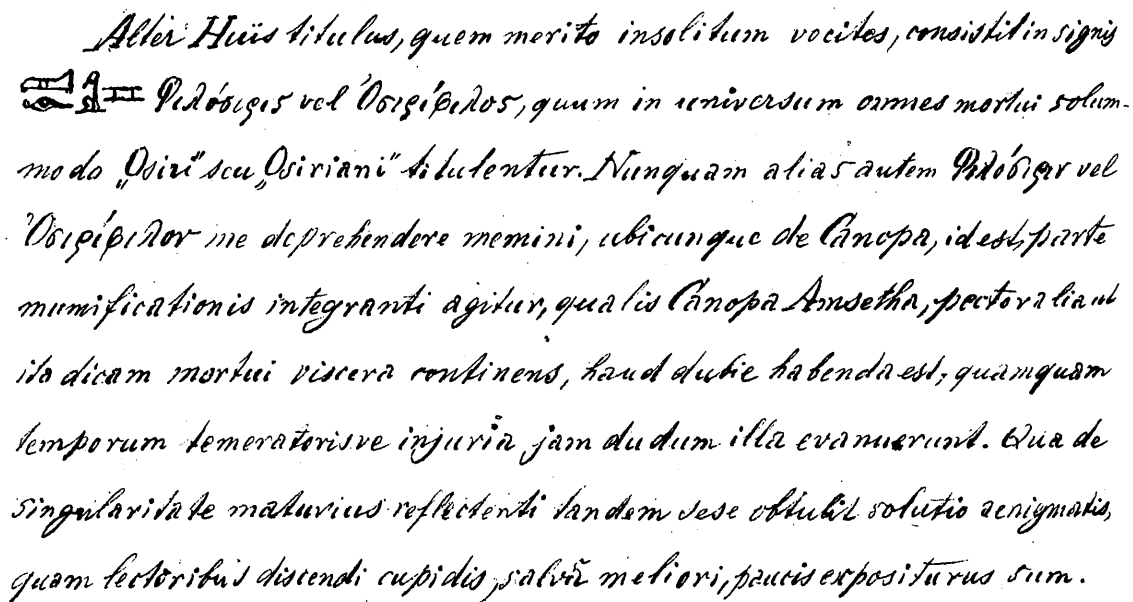 Alter Huïs titulus, quem merito insolitum vocites, consistit in signis
Φιλόσιρις vel Ὀσιρίφιλος, quum in universum omnes mortui solum-
modo „Osiri" seu „Osiriani" titulentur. Nunquam alias autem Φιλόσιριν vel
Ὀσιρίφιλον me deprehendere memini, ubicunque de Canopa, id est, parte
mumificationis integranti agitur, qualis Canopa Amsetha, pectoralia ut
ita dicam mortui viscera continens, haud dubie habenda est, quamquam
temporum temeratorisve injuriâ jam dudum illa evanuerunt. Qua de
singularitate maturius reflectenti tandem sese obtulit solutio aenigmatis,
quam lectoribus discendi cupidis, salvâ meliori, paucis expositurus sum.